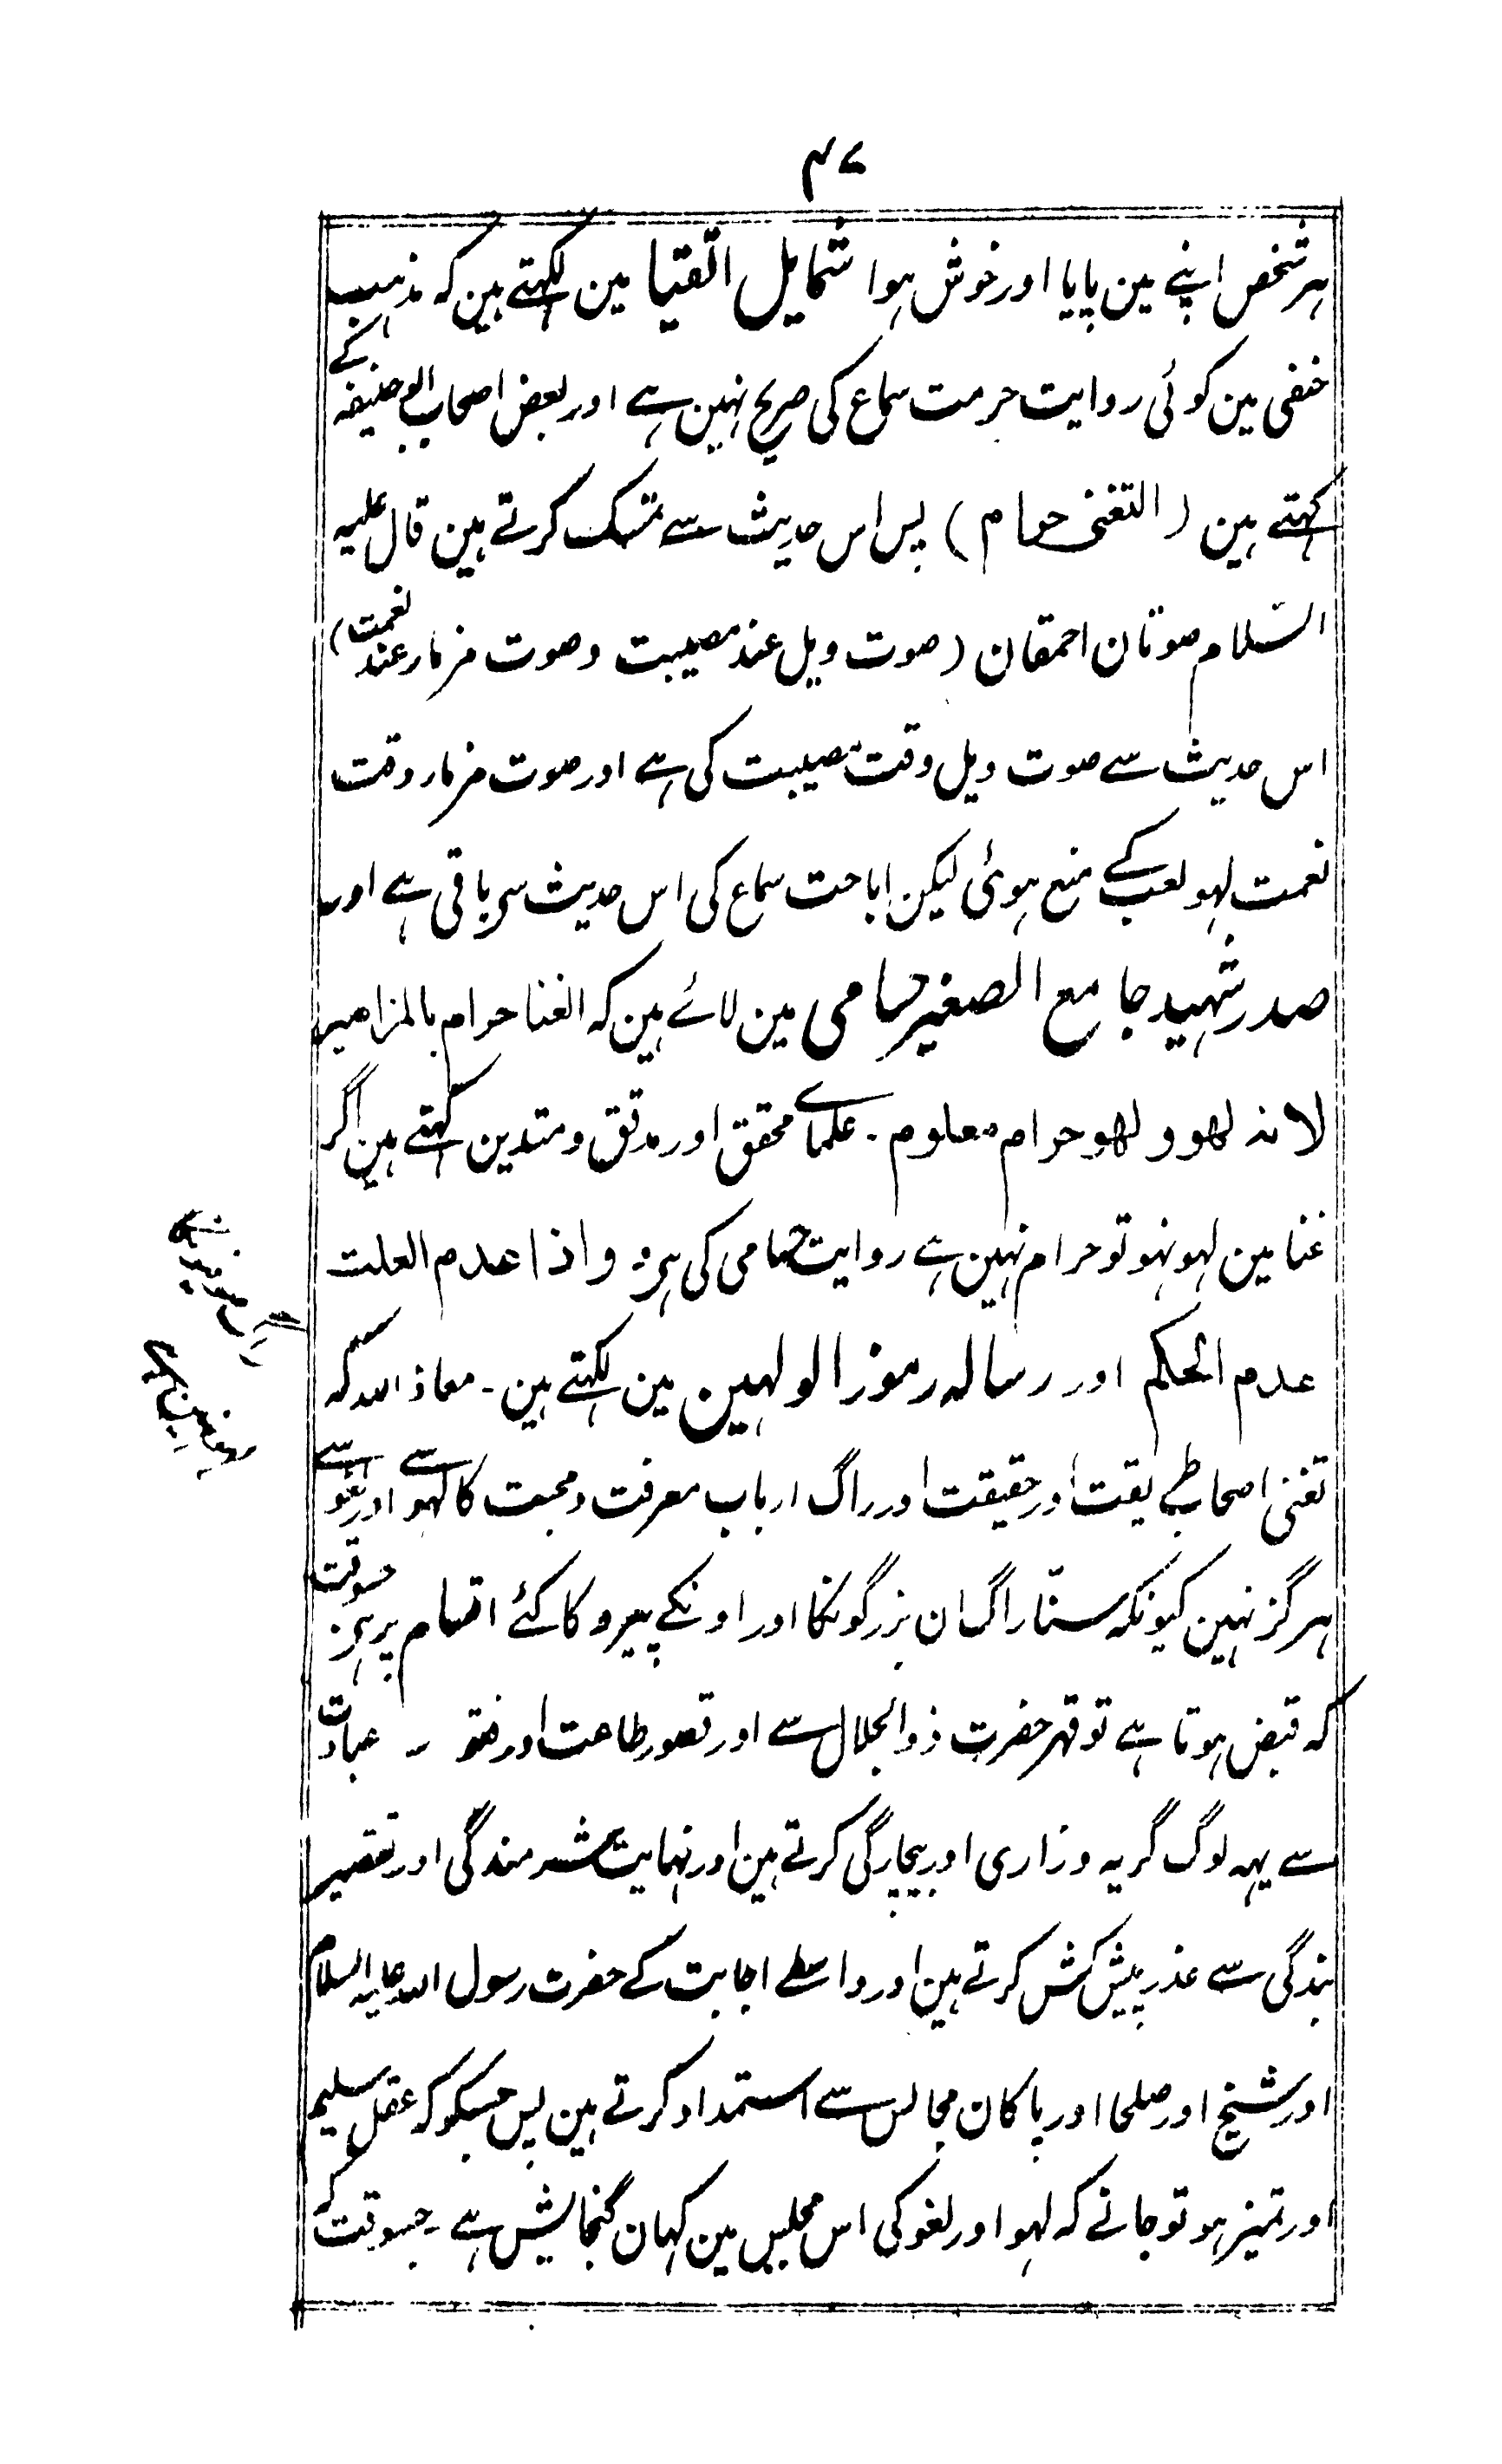 ۴۷
ہر شخص اپنے مین پایا اور خوش ہوا شمایل اتقیا مین لکہتے ہین کہ مذہب
حنفی مین کوئی روایت حرمت سماع کی صریح نہین ہے اور بعض اصحاب ابو حنیفہ کے
کہتے ہین (التغنی حرام) پس اس حدیث سے تمسک کرتے ہین قال علیہ
السّلام صوتان احمقان (صوت ویل عند مصیبت وصوت مزمار عند نعمت)
اس حدیث سے صوت ویل وقت مصیبت کی ہے اور صوت مزمار وقت
نعمت لہو لعب کے منع ہوئی لیکن اباحت سماع کی اس حدیث سی باقی ہے اور
صدر شہید جامع الصغیر حسامی مین لائے ہین کہ الغنا حرام بالمزامیر
لانہ لھو و لھو حرام معلوم ۔ علمائے محقق اور مدقق و متدین کہتے ہین اگر
غنا مین لہو نہو تو حرام نہین ہے روایت حسامی کی ہی واذا عدم العلت
عدم الحکم اور رسالہ رموز الولہین مین لکہتے ہین ۔ معاذ اللہ کہ
تغنی اصحاب طریقت اور حقیقت اور راگ ارباب معرفت و محبت کا لہو سے اور لغو سے
ہرگز نہین کیونکہ سننا راگ ان بزرگونکا اور اونکے پیرو کا کئے اقسام پر ہی جسوقت
کہ قبض ہوتا ہے تو قہر حضرت ذوالجلال سے اور قصور طاعت اور فتور عبادات
سے یہہ لوگ گریہ وزاری اور بیچارگی کرتے ہین اور نہایت شرمندگی اور تقصیر
بندگی سے عذر پیش کش کرتے ہین اور واسطے اجابت کے حضرت رسول اللہ علیہ السلام
اور شیخ اور صلحا اور پاکان مجالس سے استمداد کرتے ہین پس جسکو کہ عقل سلیم
اور تمیز ہو تو جانے کہ لہو اور لغو کی اس مجلس مین کہان گنجایش ہے ۔ جسوقت کہ